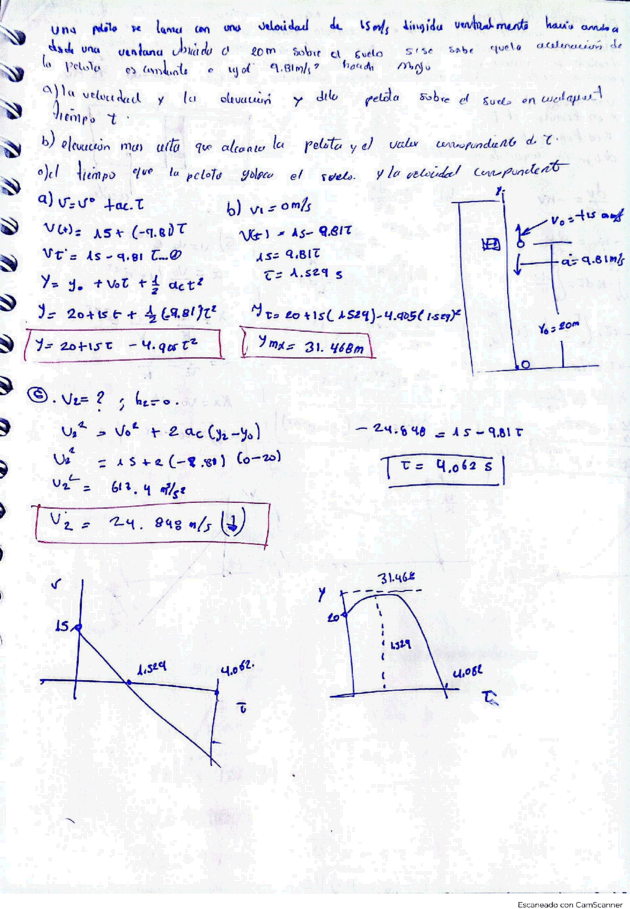 una pelota se lanza con una velocidad de 15m/s dirigida verticalmente hacia arriba
desde una ventana ubicada a 20m sobre el suelo si se sabe que la aceleración de
la pelota es constante e igual 9.81m/s² hacia abajo
a) la velocidad y la elevación y de la pelota sobre el suelo en cualquier
tiempo t.
b) elevacion mas alta que alcanza la pelota y el valor correspondiente de t.
c) el tiempo que la pelota golpea el suelo. y la velocidad correspondiente
a) v = v° + ac.t
V(t) = 15 + (-9.8)t
Vt = 15 - 9.81 t...①
Y = y₀ + v₀t + 1/2 act²
y = 20+15t + 1/2 (-9.81)t²
y = 20+15t - 4.905t²
b) v₁ = 0m/s
V(t) = 15 - 9.81t
15 = 9.81t
t = 1.529 s
yt = 20+15(1.529)-4.905(1.529)²
ymx = 31.468m
y
V₀=+15 m/s
a = 9.81m/s
Y₀=20m
©. V₂ = ? ; h₂=0.
U₂² = V₀² + 2 ac(y₂-y₀)
U₂² = 15 + 2(-9.81)(0-20)
U₂² = 617.4 m²/s²
U₂ = 24.848 m/s (↓)
-24.848 = 15 - 9.81t
t = 4.062 s
v
15
1.529
4.062.
t
y
31.468
20
1.529
4.062
t
Escaneado con CamScanner